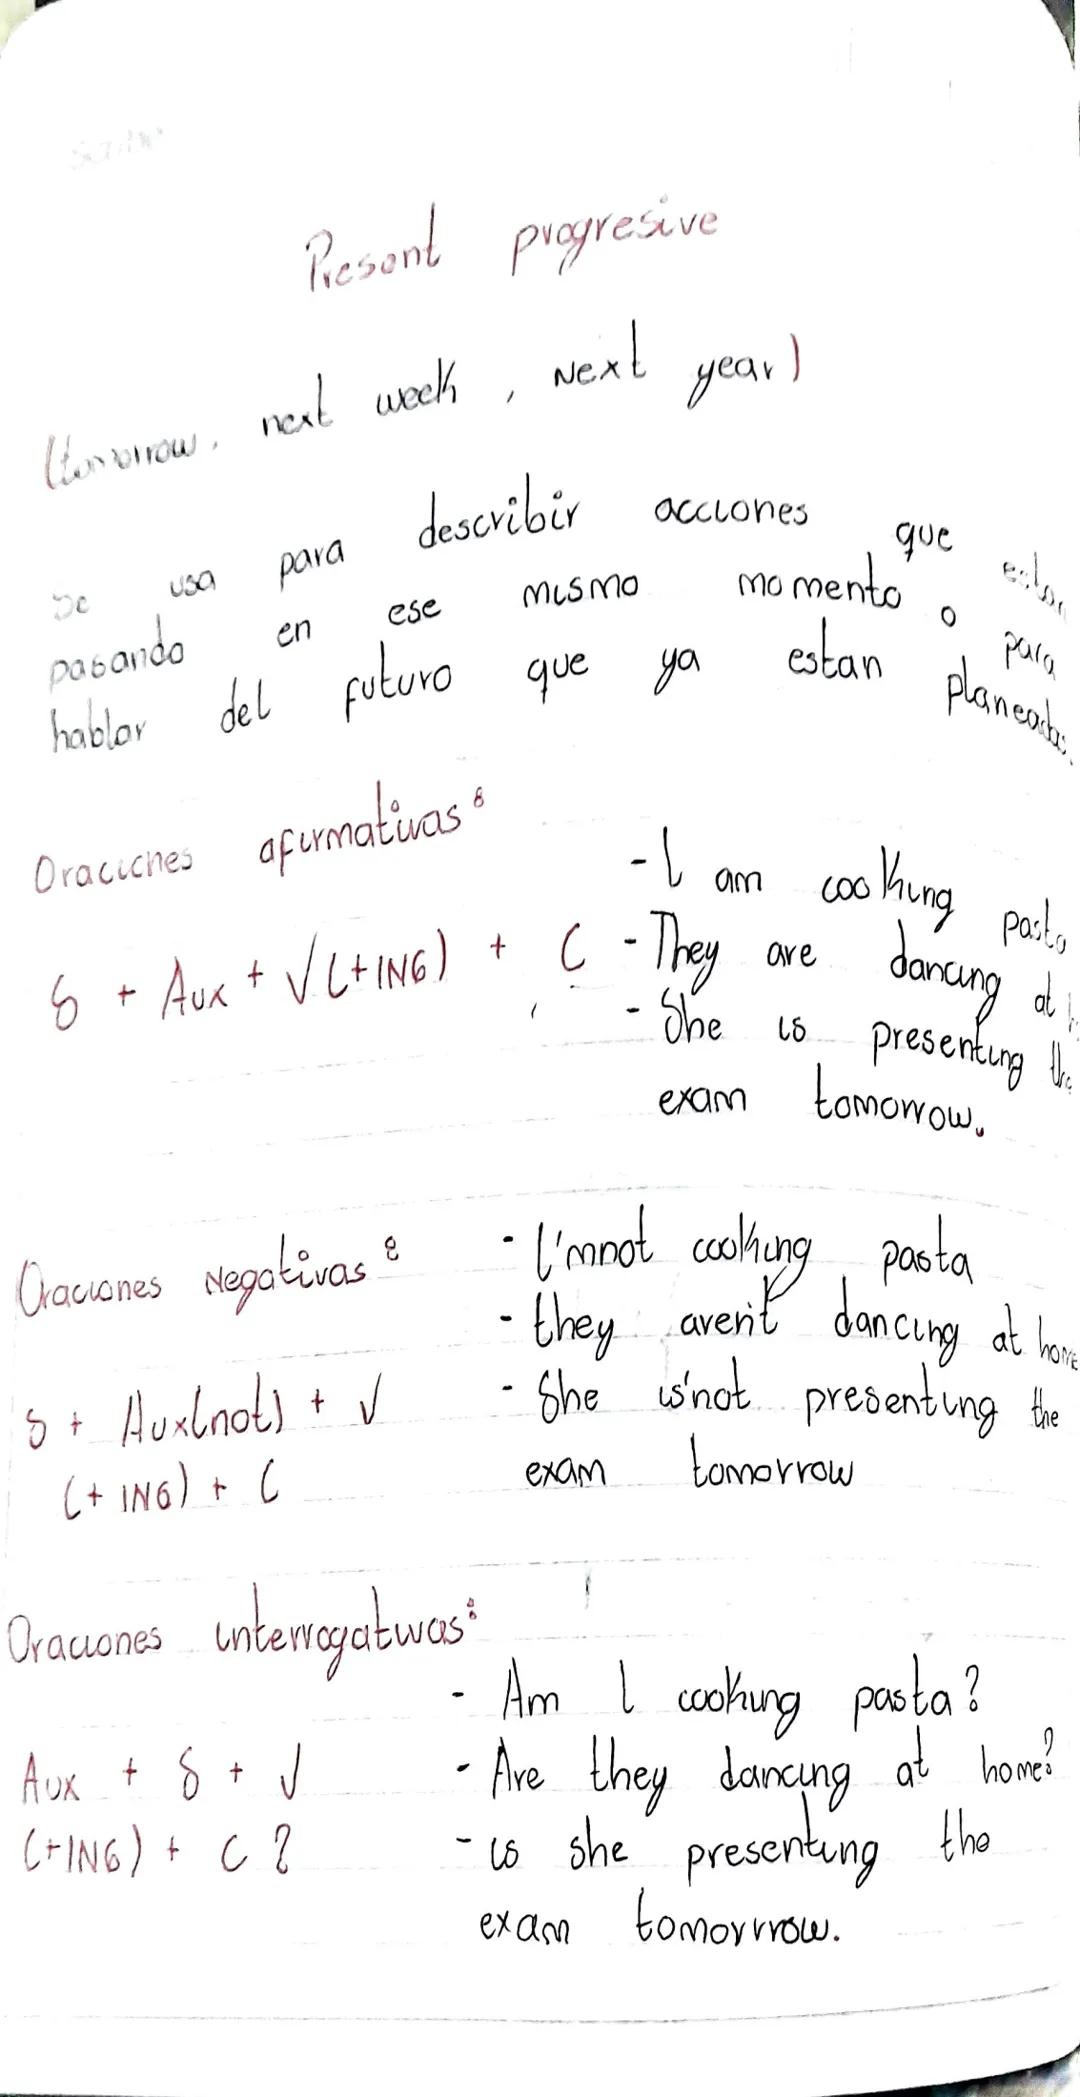 Scribe
Present progresive
(tomorrow, next week, Next year)
Se usa para describir acciones que estan
pasando en ese mismo momento o para
hablar del futuro que ya estan planeadas.
Oraciones afirmativas:
S + Aux + V (+ING) + C
- I am cooking pasta
- They are dancing at
- She is presenting the
exam tomorrow.
Oraciones Negativas:
S + Aux(not) + V
(+ ING) + C
- I'mnot cooking pasta
- they aren't dancing at home
- She is'not presenting the
exam tomorrow
Oraciones interrogativas:
Aux + S + V
(+ING) + C ?
- Am I cooking pasta?
- Are they dancing at home?
- is she presenting the
exam tomorrrow.